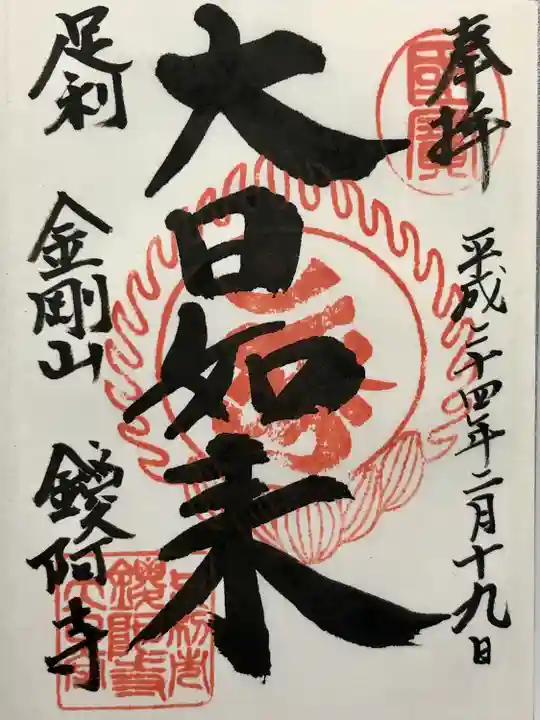 奉拝
平成二十四年二月十九日
大日如来
足利 金剛山 鑁阿寺
國寶